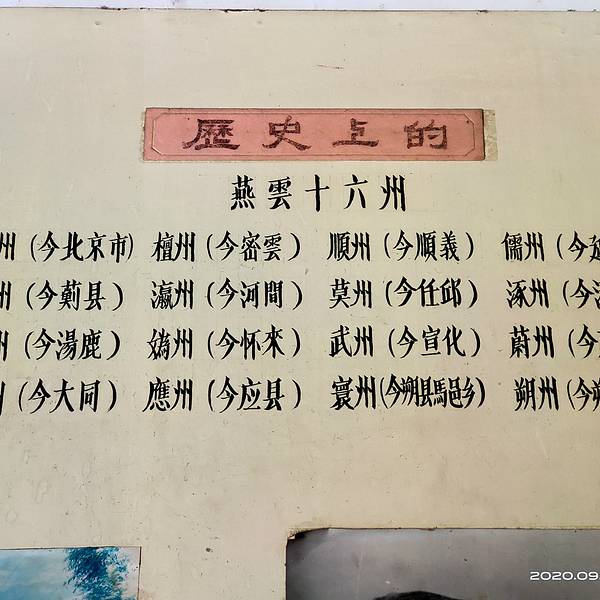 歷史上的
燕雲十六州
州（今北京市）檀州（今密雲）順州（今順義）儒州（今延
州（今薊县）瀛州（今河間）莫州（今任邱）涿州（今
州（今湯鹿）媯州（今怀來）武州（今宣化）蔚州（今
州（今大同）應州（今应县）寰州（今朔县馬邑乡）朔州（今朔
2020.09